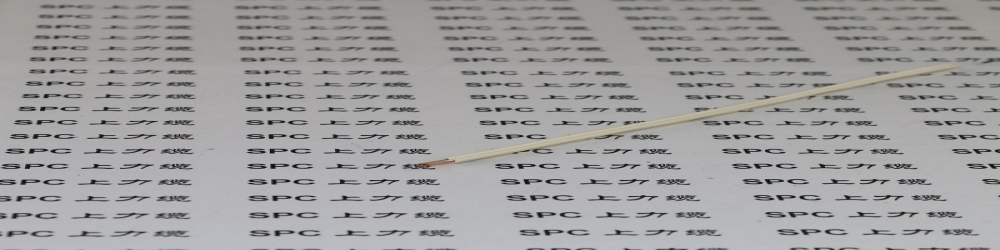 SPC 上力缆 SPC 上力缆 SPC 上力缆 SPC 上力缆 SPC 上力缆
SPC 上力缆 SPC 上力缆 SPC 上力缆 SPC 上力缆 SPC 上力缆
SPC 上力缆 SPC 上力缆 SPC 上力缆 SPC 上力缆 SPC 上力缆
SPC 上力缆 SPC 上力缆 SPC 上力缆 SPC 上力缆 SPC 上力缆
SPC 上力缆 SPC 上力缆 SPC 上力缆 SPC 上力缆 SPC 上力缆
SPC 上力缆 SPC 上力缆 SPC 上力缆 SPC 上力缆 SPC 上力缆
SPC 上力缆 SPC 上力缆 SPC 上力缆 SPC 上力缆 SPC
SPC 上力缆 SPC 上力缆 SPC 上力缆 SPC 上力缆 SPC 上力缆
SPC 上力缆 SPC 上力缆 SPC 上力缆 SPC 上力缆 SPC 上力缆
SPC 上力缆 SPC 上力缆 SPC 上力缆 SPC 上力缆 SPC 上力
SPC 上力缆 SPC 上力缆 SPC 上力缆 SPC 上力缆 SPC 上
SPC 上力缆 SPC 上力缆 SPC 上力缆 SPC 上力缆 SPC
SPC 上力缆 SPC 上力缆 SPC 上力缆 SPC 上力缆 SPC
SPC 上力缆 SPC 上力缆 SPC 上力缆 SPC 上力缆
SPC 上力缆 SPC 上力缆 SPC 上力缆 SPC 上力缆
SPC 上力缆 SPC 上力缆 SPC 上力缆 SPC 上力缆
SPC 上力缆 SPC 上力缆 SPC 上力缆 SPC 上力缆
SPC 上力缆 SPC 上力缆 SPC 上力缆 SPC 上力缆